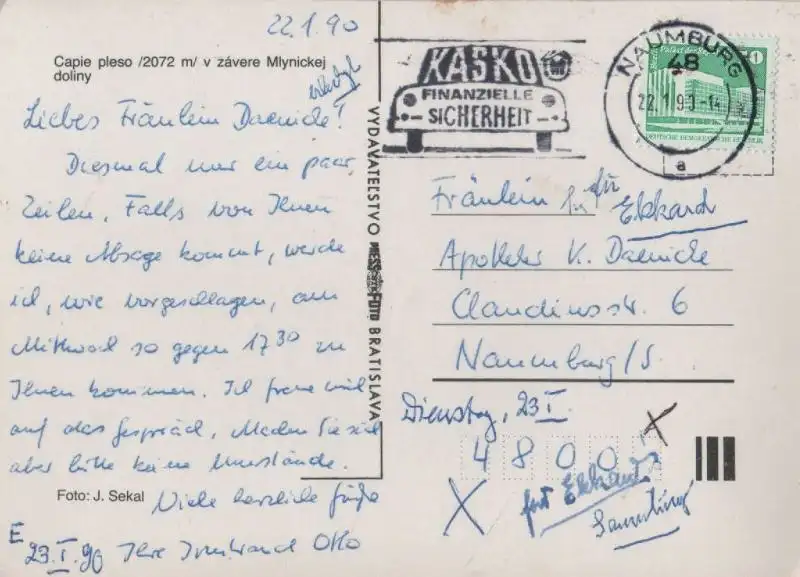 22.1.90
Capie pleso /2072 m/ v závere Mlynickej
doliny
erledigt
Liebes Fräulein Daenicke!
Diesmal nur ein paar
Zeilen. Falls von Ihnen
keine Absage kommt, werde
ich, wie vorgeschlagen, am
Mittwoch so gegen 17 30 zu
Ihnen kommen. Ich freue mich
auf das Gespräch. Machen Sie sich
aber bitte keine Umstände.
Foto: J. Sekal
Viele herzliche Grüße
E 23.I.90
Ihre Otto
VYDAVATEĽSTVO PRESSFOTO BRATISLAVA
KASKO
FINANZIELLE
SICHERHEIT
NAUMBURG
48
22.1.90-14
a
DEUTSCHE DEMOKRATISCHE REPUBLIK
Fräulein
für Ekkard
Apotheker K. Daenicke
Claudiusstr. 6
Naumburg/S.
Dienstag, 23.I.
X
4800
X
für Ekkards
Sammlung